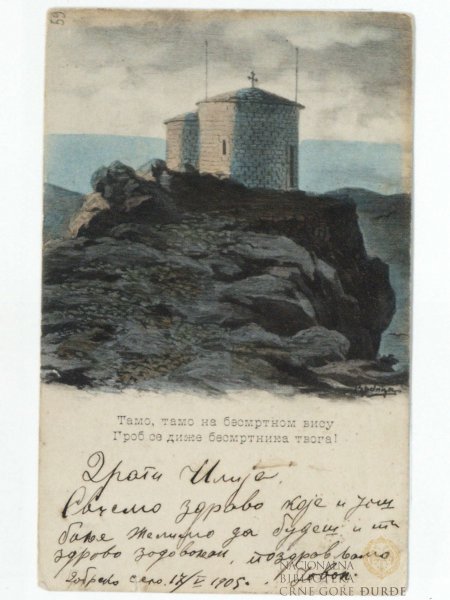 59
Тамо, тамо на бесмртном вису
Гроб се диже бесмртника твога!
Драги Илија.
здраво који и још
желимо да будеш и ти
здраво задовољан, поздрав вама
Добрско село. 17/V 1905.
NACIONALNA
BIBLIOTEKA
CRNE GORE ĐURĐE